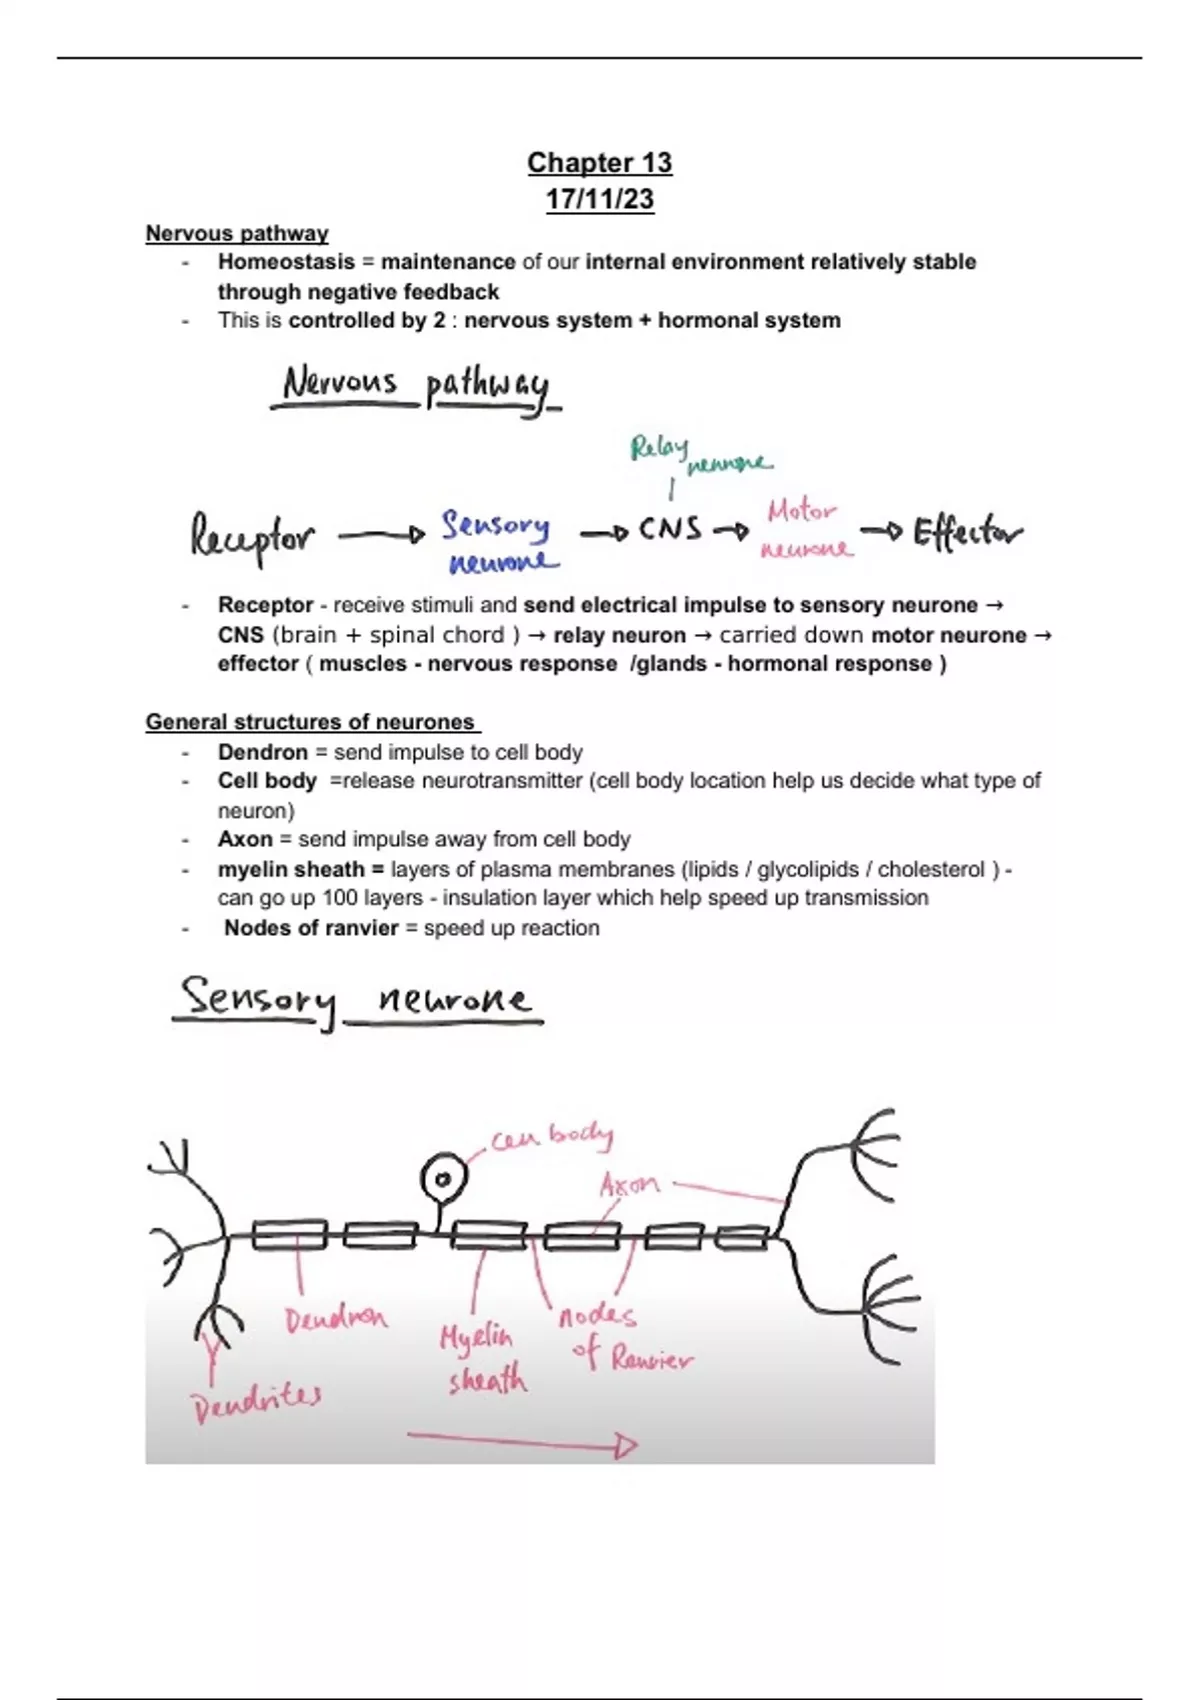 Chapter 13
17/11/23
Nervous pathway
- Homeostasis = maintenance of our internal environment relatively stable
through negative feedback
- This is controlled by 2 : nervous system + hormonal system
Nervous pathway
Relay
neurone
Receptor → Sensory → CNS → Motor → Effector
neurone neurone
- Receptor - receive stimuli and send electrical impulse to sensory neurone →
CNS (brain + spinal chord ) → relay neuron → carried down motor neurone →
effector ( muscles - nervous response /glands - hormonal response )
General structures of neurones
- Dendron = send impulse to cell body
- Cell body =release neurotransmitter (cell body location help us decide what type of
neuron)
- Axon = send impulse away from cell body
- myelin sheath = layers of plasma membranes (lipids / glycolipids / cholesterol ) -
can go up 100 layers - insulation layer which help speed up transmission
- Nodes of ranvier = speed up reaction
Sensory neurone
Cell body
Axon
Dendron
Myelin
sheath
nodes
of Ranvier
Dendrites